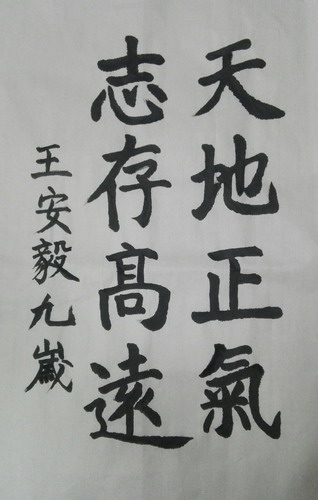 天地正氣
志存髙遠
王安毅九嵗